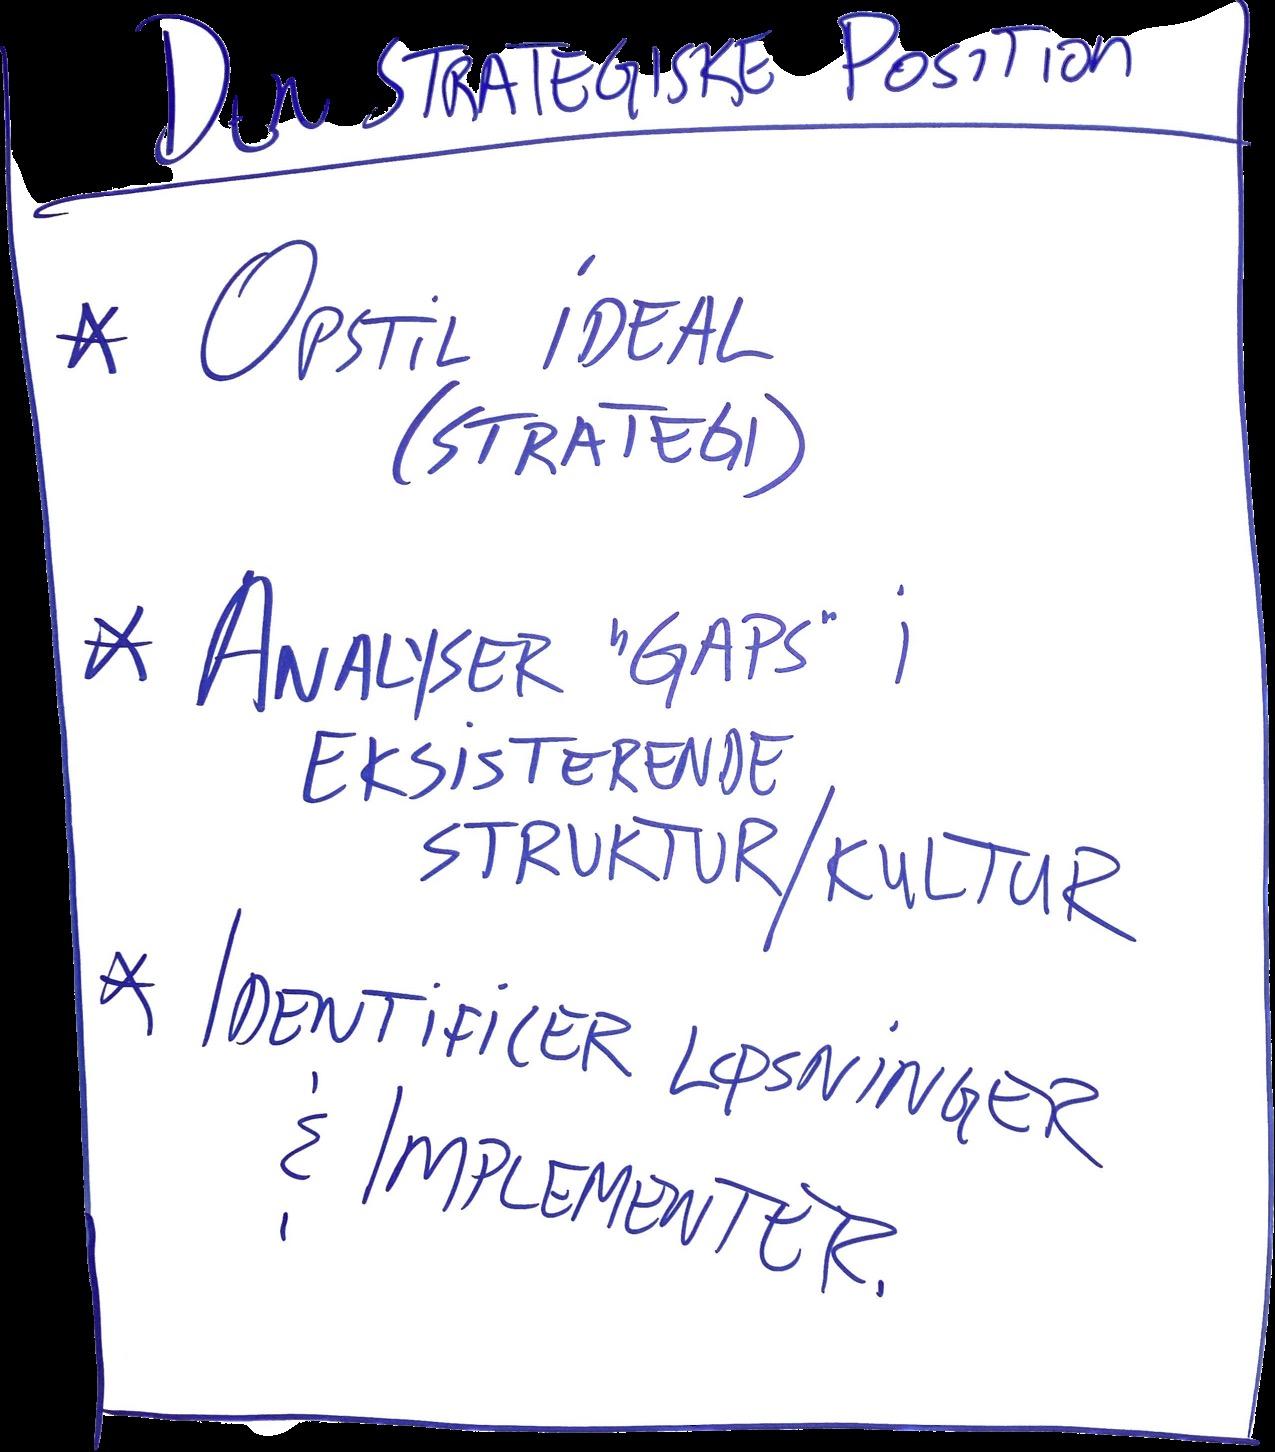 Den STRATEGISKE POSiTION
* OPSTiL iDEAL
(STRATEGI)
* ANALYSER "GAPS" i
EKSiSTERENDE
STRUKTUR/KULTUR
* IDENTiFiCER LØSNiNGER
& IMPLEMENTER.